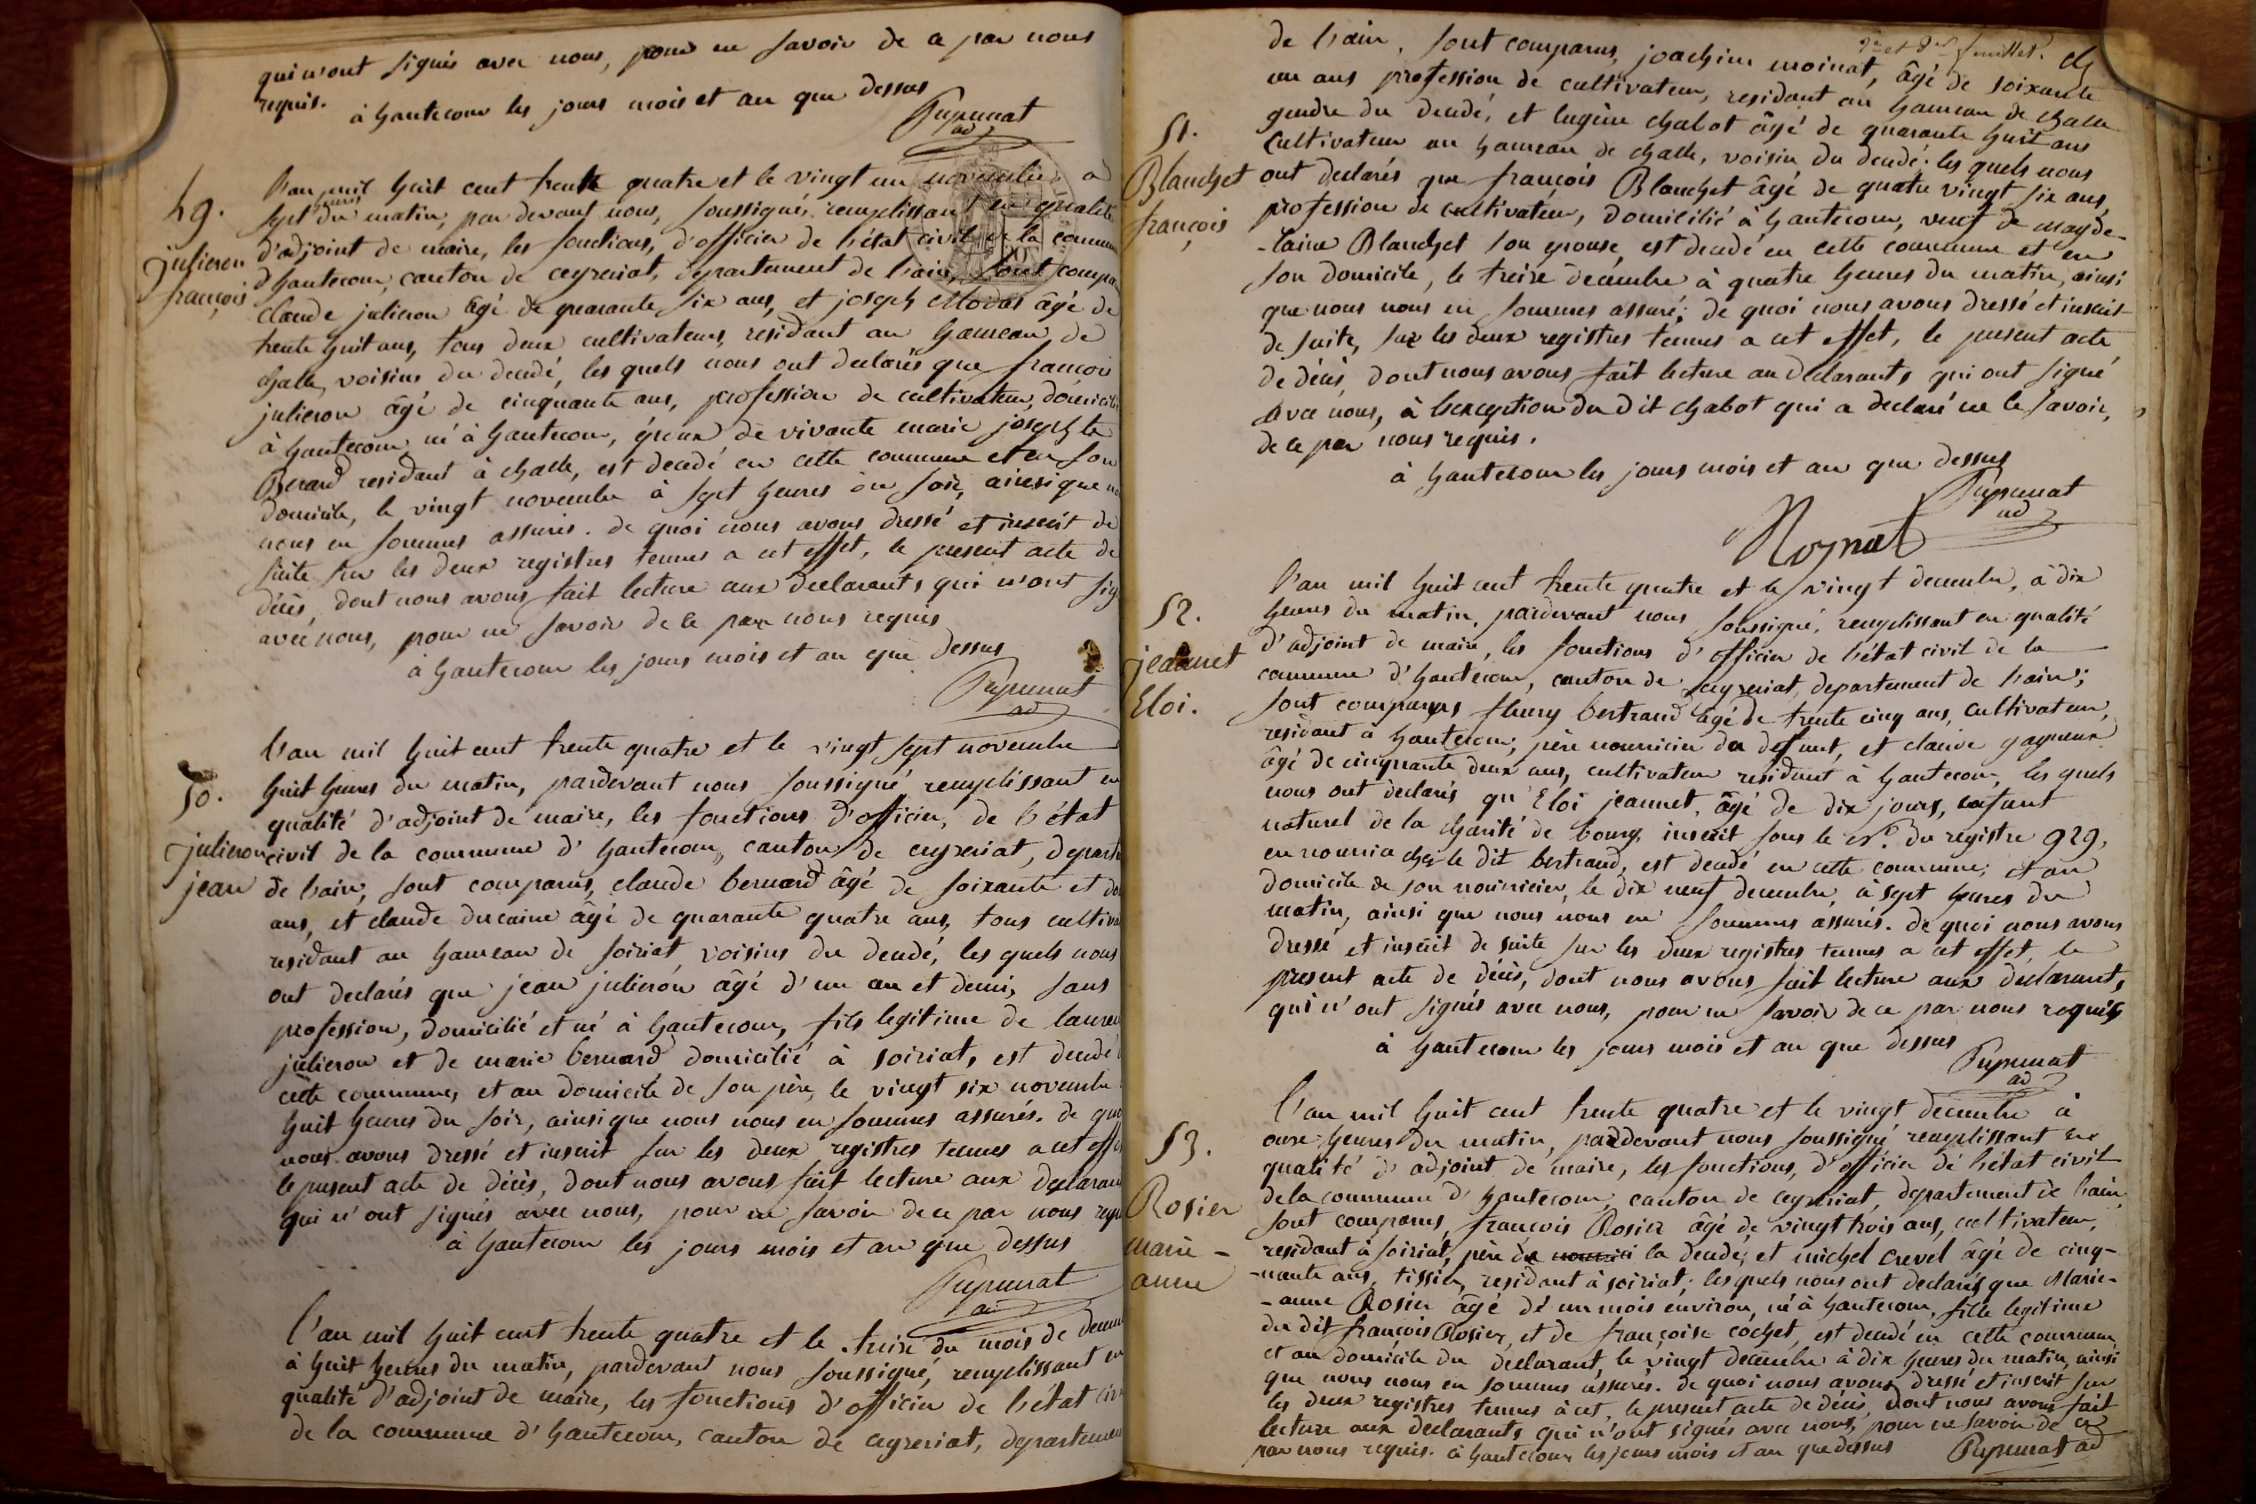 qui n'ont signés avec nous, pour ne savoir de ce par nous
requis.
à hautecour les jours mois et an que dessus
Pupunat
ad
49.
julieron
françois
L'an mil huit cent trente quatre et le vingt un novembre a
sept heures du matin, par devant nous, soussigné, remplissant en qualité
d'adjoint de maire, les fonctions, d'officier de l'état civil de la commune
d'hautecour, canton de ceyzeriat, departement de l'ain, sont compa
claude julieron âgé de quarante six ans, et joseph Moras âgé de
trente huit ans, tous deux cultivateurs, residant au hameau de
challe, voisins du decedé, les quels nous ont declarés que françois
julieron âgé de cinquante ans, profession de cultivateur, domicilié
à hautecour, né à hautecour, époux de vivante marie josephte
Berard residant à challe, est decedé en cette commune et en son
domicile, le vingt novembre à sept heures du soir, ainsi que n
nous en sommes assurés. de quoi nous avons dressé et inscrit de
suite sur les deux registres tennus a cet effet, le present acte de
décès, dont nous avons fait lecture aux declarants, qui n'ont sig
avec nous, pour ne savoir de ce par nous requis
à hautecour les jours mois et an que dessus
Pupunat
ad
50.
julieron
jean
L'an mil huit cent trente quatre et le vingt sept novembre
huit heures du matin, pardevant nous soussigné remplissant en
qualité d'adjoint de maire, les fonctions d'officier, de l'état
civil de la commune d'hautecour, canton de ceyzeriat, departe
de l'ain, sont comparus, claude bernard âgé de soixante et d
ans, et claude ducaine âgé de quarante quatre ans, tous cultiva
residant au hameau de soiriat, voisins du decedé, les quels nous
ont declarés que jean julieron âgé d'un an et demi, sans
profession, domicilié et né à hautecour, fils legitime de lauren
julieron et de marie bernard domicilié à soiriat, est decedé
cette commune, et au domicile de son père, le vingt six novembre
huit heures du soir, ainsi que nous nous en sommes assurés. de quo
nous avons dressé et inscrit sur les deux registres tennus a cet effe
le present acte de décès, dont nous avons fait lecture aux declaran
qui n'ont signés avec nous, pour ne savoir de ce par nous requ
à hautecour les jours mois et an que dessus
Pupunat
ad
L'an mil huit cent trente quatre et le treize du mois de decem
à huit heures du matin, pardevant nous soussigné, remplissant en
qualité d'adjoint de maire, les fonctions d'officier de l'état civ
de la commune d'hautecour, canton de ceyzeriat, departement
et feuillet.
51.
Blanchet
françois
de l'ain, sont comparus, joachim moinat, âgé de soixante
un ans profession de cultivateur, residant au hameau de challe
gendre du decedé, et Eugène chabot âgé de quarante huit ans
cultivateur au hameau de challe, voisin du decedé. les quels nous
ont declarés que françois Blanchet âgé de quatre vingt six ans,
profession de cultivateur, domicilié à hautecour, veuf de magde-
-laine Blanchet son epouse, est decedé en cette commune et en
son domicile, le treize decembre à quatre heures du matin, ainsi
que nous nous en sommes assuré; de quoi nous avons dressé et inscrit
de suite, sur les deux registres tennus a cet effet, le present acte
de décès, dont nous avons fait lecture au declarants, qui ont signé
avec nous, à l'exception du dit chabot qui a declaré ne le savoir,
de ce par nous requis.
à hautecour les jours mois et an que dessus
Pupunat
ad
Moynat
52.
jeannet
Eloi.
L'an mil huit cent trente quatre et le vingt decembre, à dix
heures du matin, pardevant nous, soussigné, remplissant en qualité
d'adjoint de maire, les fonctions d'officier de l'état civil de la
commune d'hautecour, canton de ceyzeriat, departement de l'ain;
sont comparus fleury bertrand âgé de trente cinq ans, cultivateur,
residant à hautecour, père nourricier du defunt, et claude gagneux
âgé de cinquante deux ans, cultivateur residant à hautecour, les quels
nous ont declarés qu'Eloi jeannet, âgé de dix jours, enfant
naturel de la charité de bourg, inscrit sous le N°. du registre 929,
en nourrice chez le dit bertrand, est decedé en cette commune, et au
domicile de son nourricier, le dix neuf decembre, à sept heures du
matin, ainsi que nous nous en sommes assurés. de quoi nous avons
dressé et inscrit de suite sur les deux registres tennus a cet effet, le
present acte de décès, dont nous avons fait lecture aux declarants,
qui n'ont signés avec nous, pour ne savoir de ce par nous requis
à hautecour les jours mois et an que dessus
Pupunat
ad
53.
Rosier
marie -
anne
L'an mil huit cent trente quatre et le vingt decembre à
onze heures du matin, pardevant nous soussigné remplissant en
qualité d'adjoint de maire, les fonctions, d'officier de l'état civil
de la commune d'hautecour, canton de ceyzeriat, departement de l'ain,
sont comparus, françois Rosier âgé de vingt trois ans, cultivateur,
residant à soiriat, père de la decedé, et michel crevel âgé de cinq-
-uante ans, tissier, residant à soiriat; les quels nous ont declarés que Marie-
-anne Rosier âgé de un mois environ, né à hautecour, fille legitime
du dit françois Rosier, et de françoise cochet, est decedé en cette commune,
et au domicile du declarant, le vingt decembre à dix heures du matin, ainsi
que nous nous en sommes assurés. de quoi nous avons dressé et inscrit sur
les deux registres tennus à cet, le present acte de décès, dont nous avons fait
lecture aux declarants, qui n'ont signés avec nous, pour ne savoir de ce
par nous requis. à hautecour les jours mois et an que dessus Pupunat ad